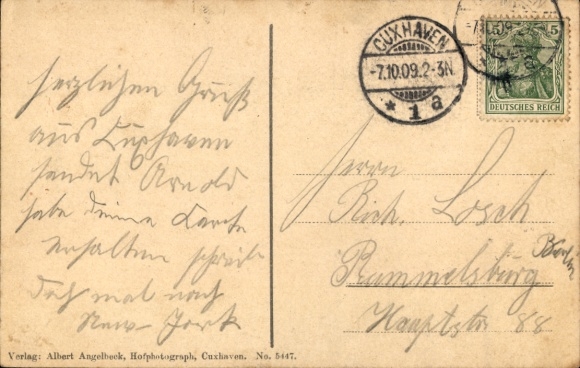 herzlichen Gruß
aus Cuxhaven
sendet Arnold
habe deine Karte
erhalten schreibe
doch mal nach
New-York
CUXHAVEN
-7.10.09.2-3N.
* 1 a
5 5
DEUTSCHES REICH
Herrn
Rich. Losch
Rummelsburg
Berlin
Hauptstr 88
Verlag: Albert Angelbeck, Hofphotograph, Cuxhaven. No. 5447.